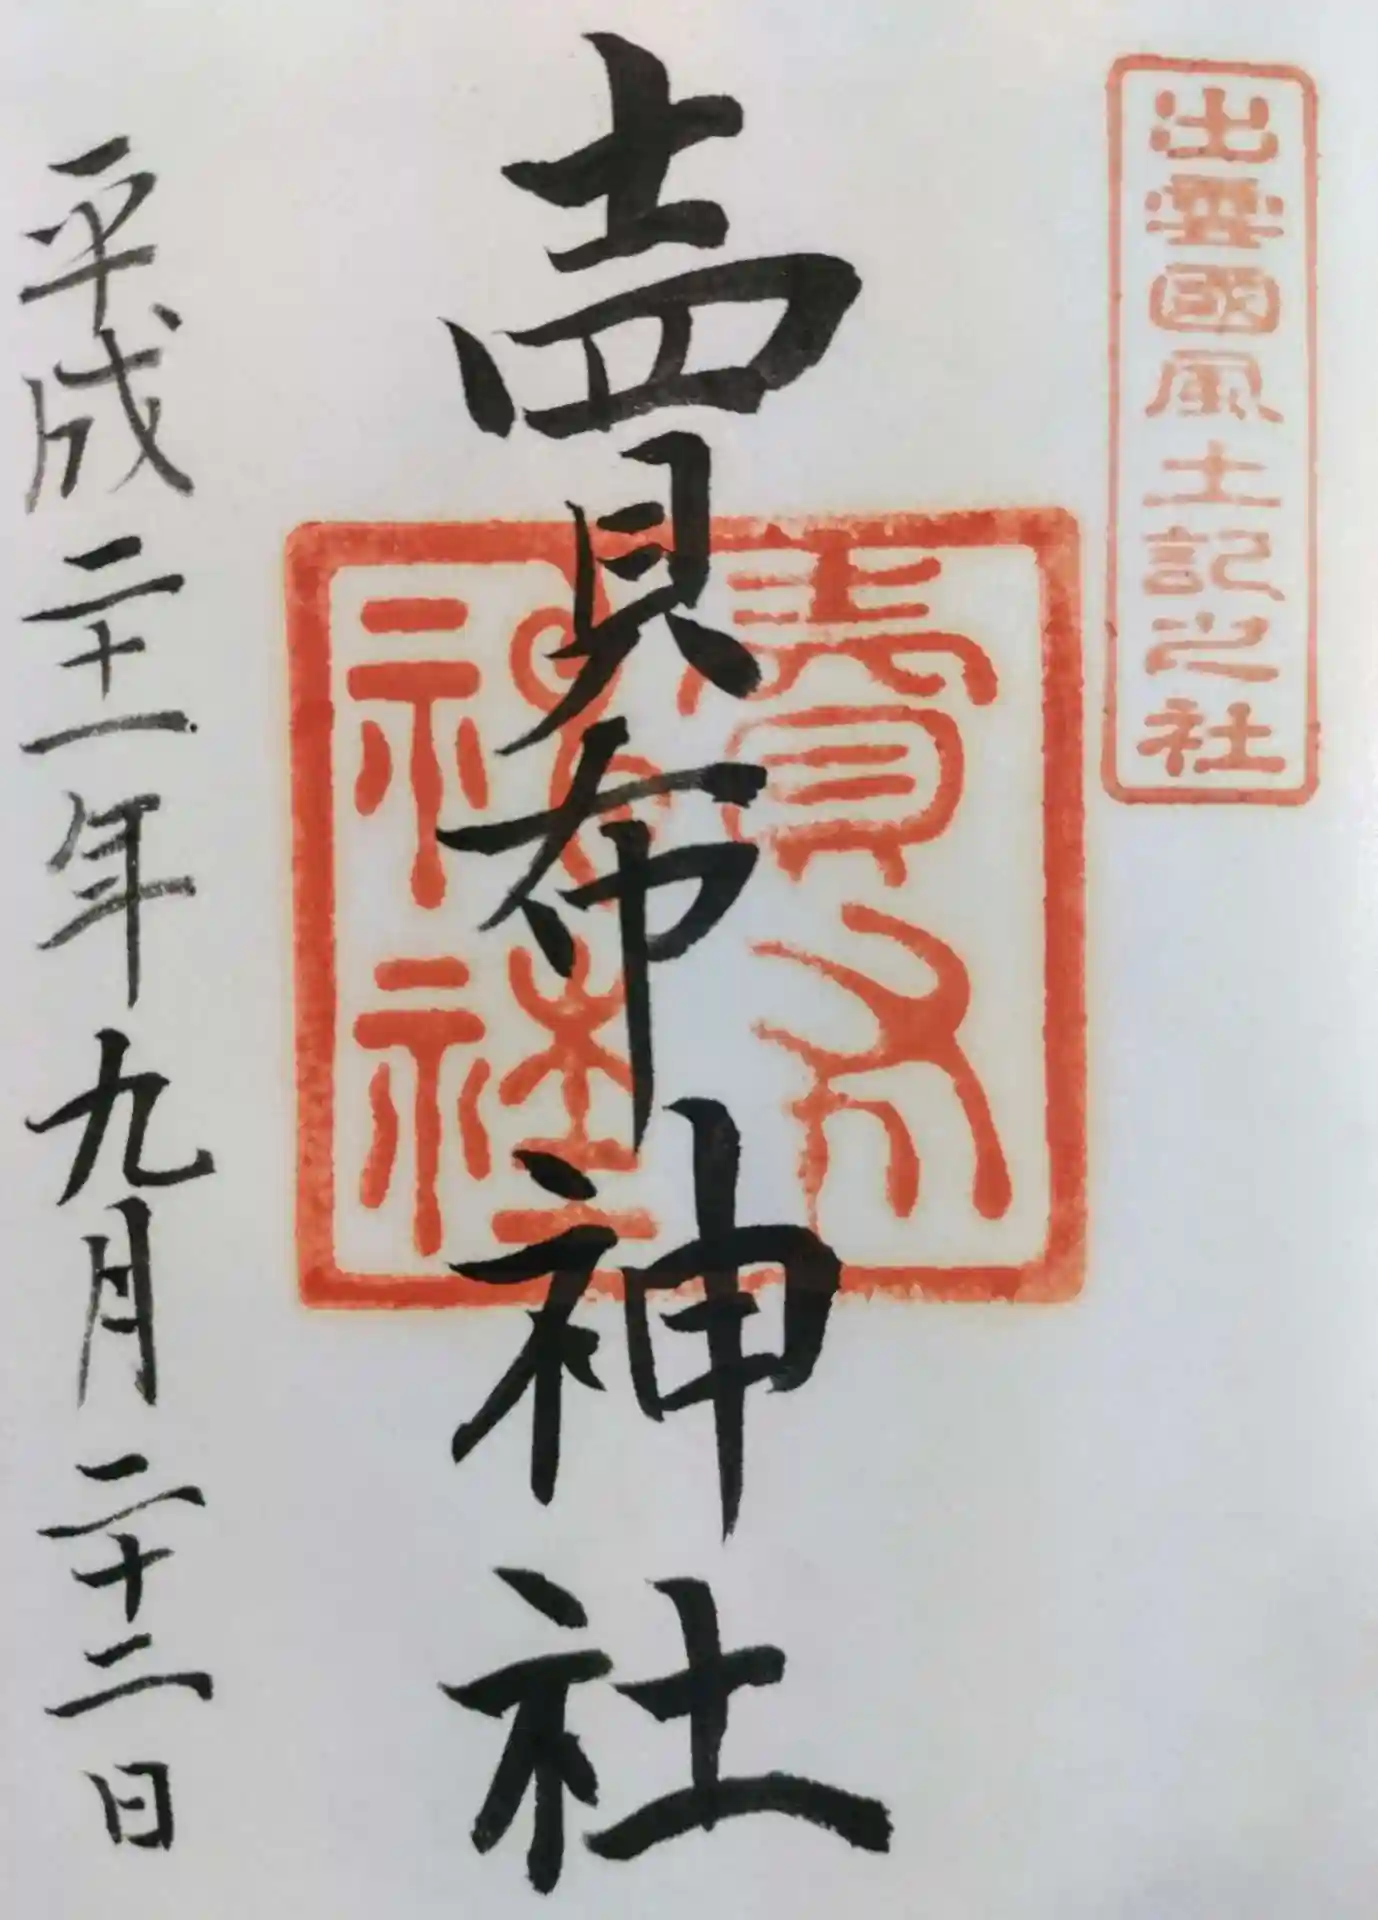 出雲國風土記之社
賣布神社
賣布神社
平成二十一年九月二十二日